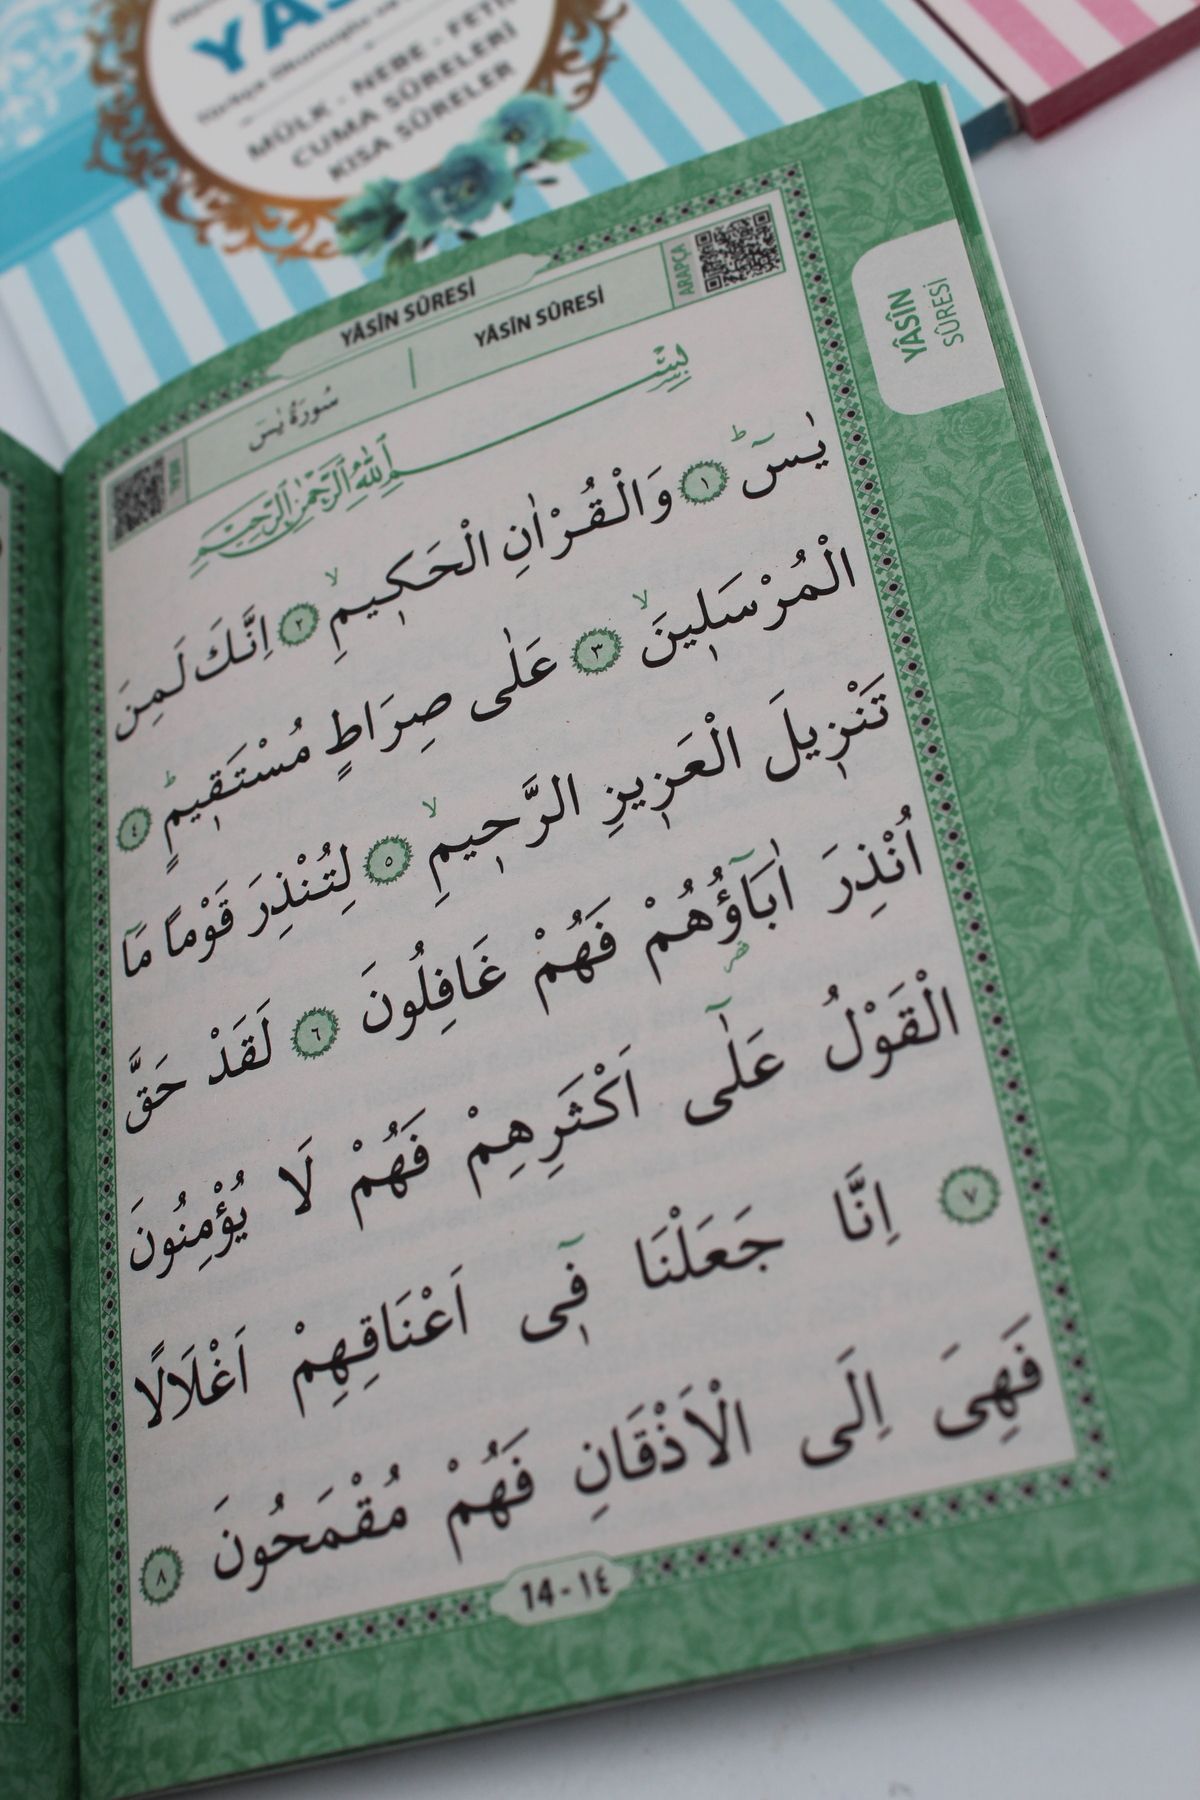 YÂS
MÜLK - NEBE - FETİH
CUMA SÛRELERİ
KISA SÛRELER
YÂSÎN SÛRESİ
سُورَةُ يٰسٓ
YÂSÎN SÛRESİ
ARAPÇA
بِسْمِ اللّٰهِ الرَّحْمٰنِ الرَّحِيمِ
يٰسٓ ۜ ﴿١﴾ وَالْقُرْاٰنِ الْحَك۪يمِۙ ﴿٢﴾ اِنَّكَ لَمِنَ
الْمُرْسَل۪ينَۙ ﴿٣﴾ عَلٰى صِرَاطٍ مُسْتَق۪يمٍۜ ﴿٤﴾
تَنْز۪يلَ الْعَز۪يزِ الرَّح۪يمِۙ ﴿٥﴾ لِتُنْذِرَ قَوْمًا مَٓا
اُنْذِرَ اٰبَٓاؤُ۬هُمْ فَهُمْ غَافِلُونَ ﴿٦﴾ لَقَدْ حَقَّ
الْقَوْلُ عَلٰٓى اَكْثَرِهِمْ فَهُمْ لَا يُؤْمِنُونَ
﴿٧﴾ اِنَّا جَعَلْنَا ف۪ٓي اَعْنَاقِهِمْ اَغْلَالًا
فَهِيَ اِلَى الْاَذْقَانِ فَهُمْ مُقْمَحُونَ ﴿٨﴾
14 - ١٤
YÂSÎN
SÛRESİ